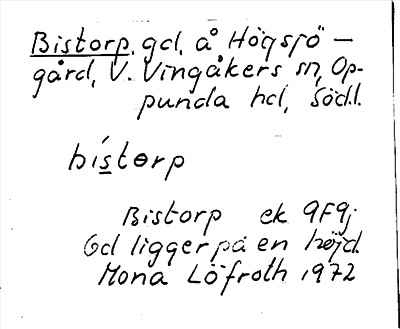 Bistorp, gd, å Högsjö –
gård, V. Vingåkers sn, Op-
punda hd, Södl.
bístɵrp
Bistorp ek 9F9j
Gd ligger på en höjd.
Mona Löfroth 1972